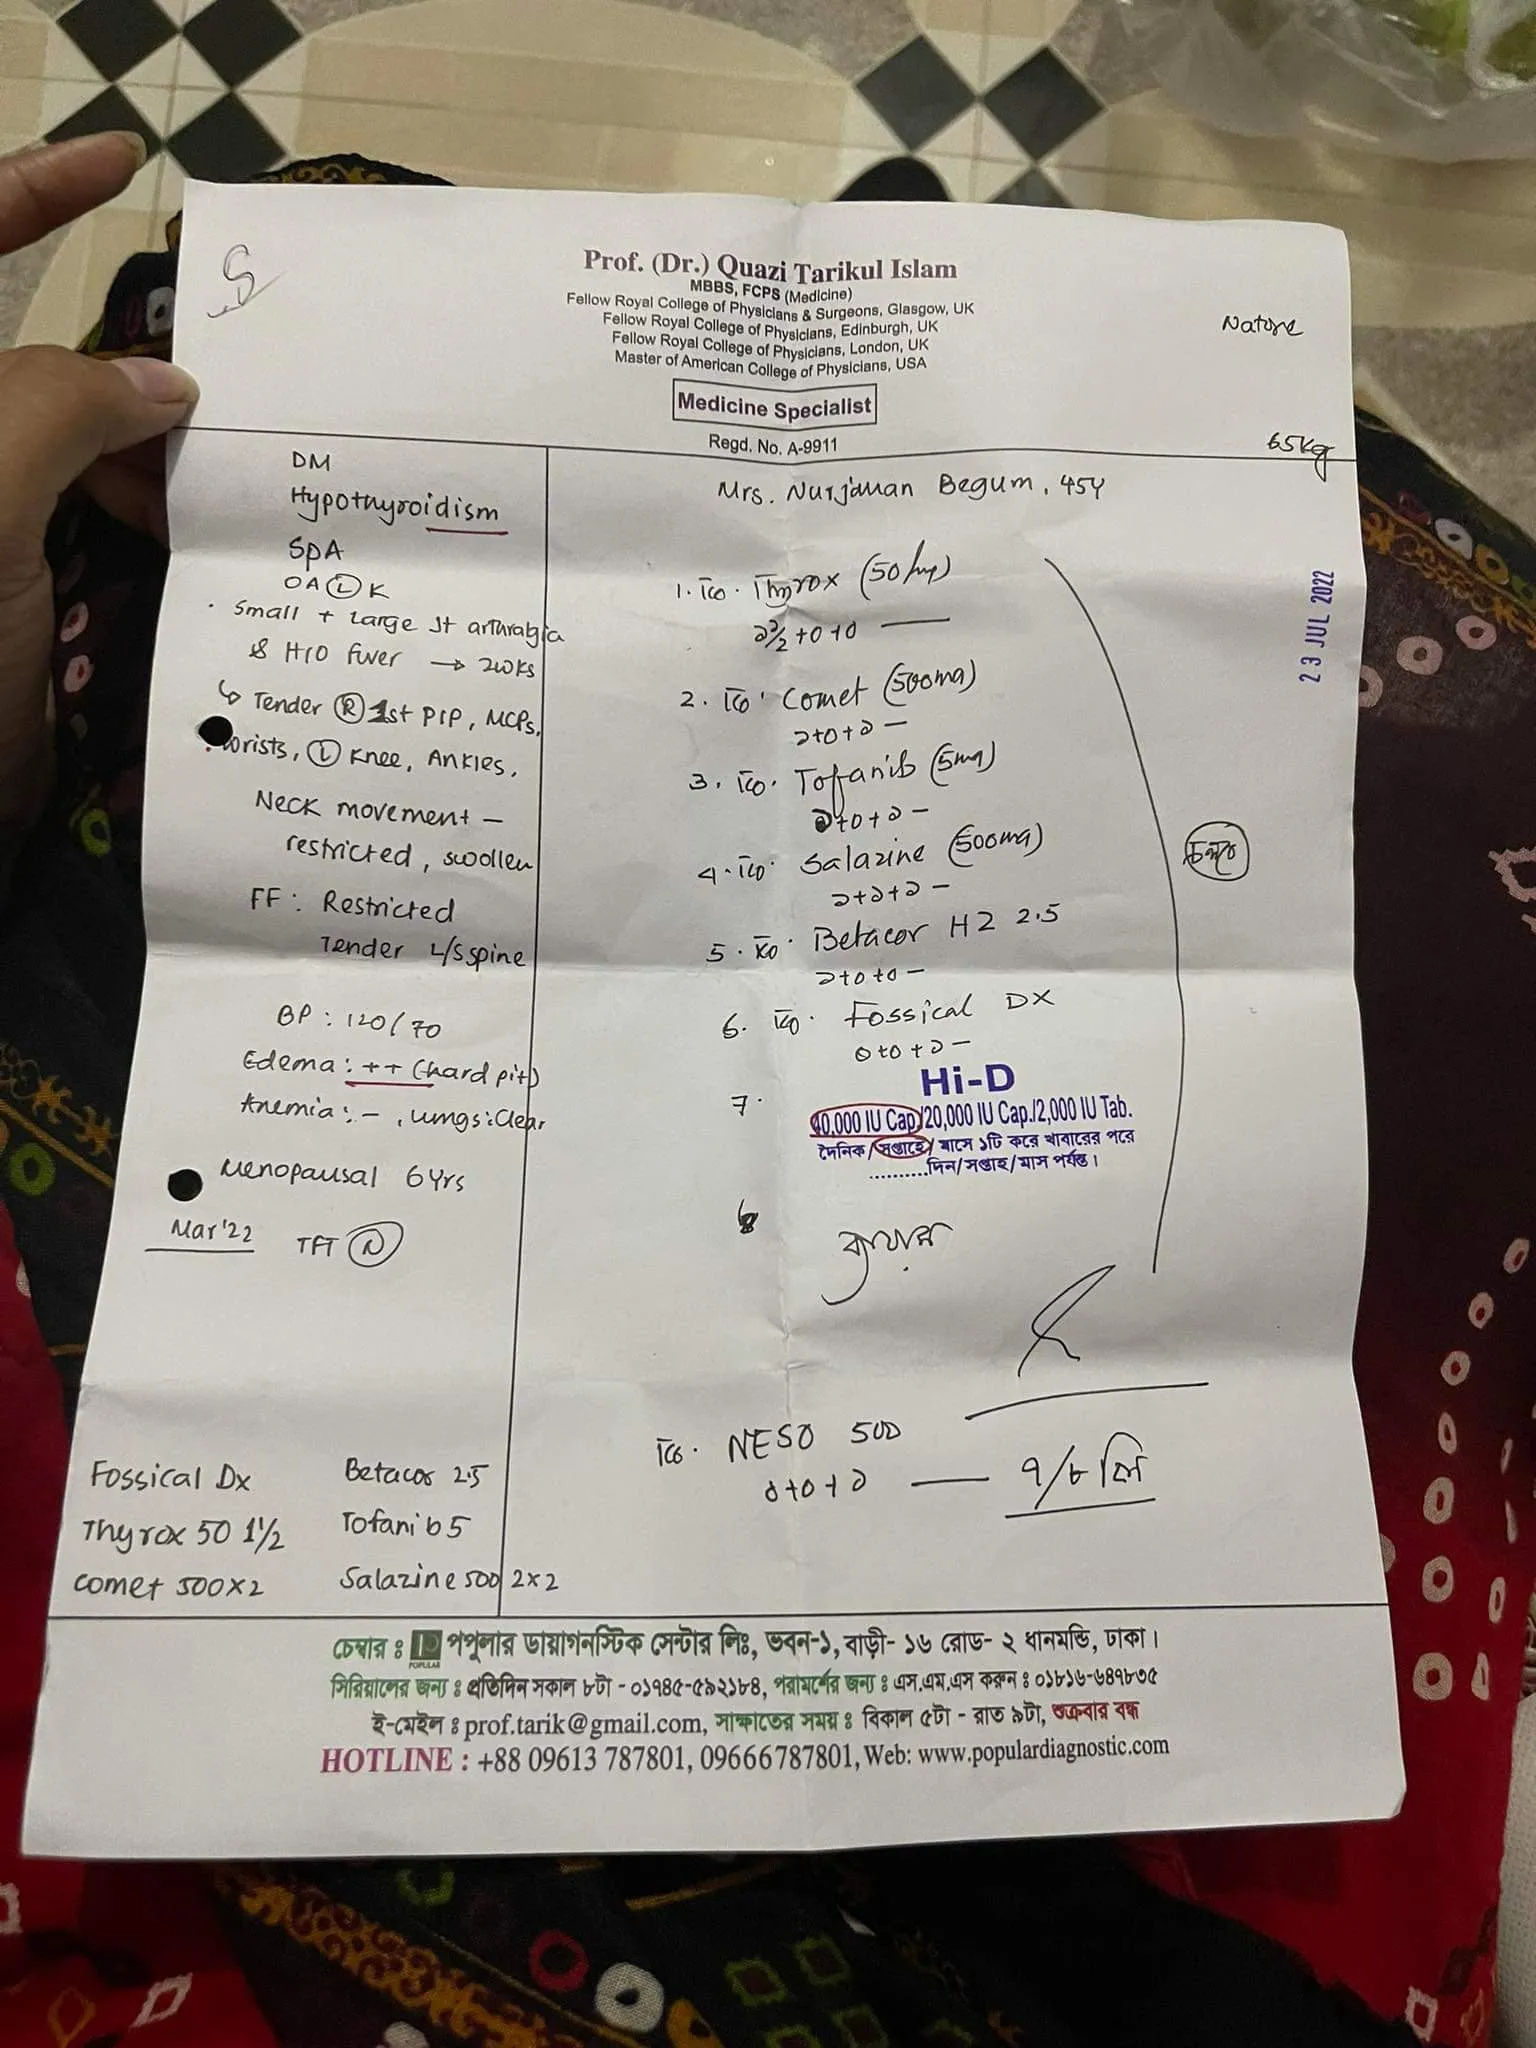 Prof. (Dr.) Quazi Tarikul Islam
MBBS, FCPS (Medicine)
Fellow Royal College of Physicians & Surgeons, Glasgow, UK
Fellow Royal College of Physicians, Edinburgh, UK
Fellow Royal College of Physicians, London, UK
Master of American College of Physicians, USA
Medicine Specialist
Regd. No. A-9911
Natore
65kg
Mrs. Nurjahan Begum, 45Y
23 JUL 2022
DM
Hypothyroidism
SpA
OA (L) K
· Small + Large Jt arthralgia
& H/O fever → 2wks
↳ Tender (R) 1st PIP, MCPs,
wrists, (L) Knee, Ankles,
Neck movement –
restricted, swollen
FF: Restricted
Tender L/S spine
BP: 120/70
Edema: ++ (hard pit)
Anemia: –, Lungs: Clear
Menopausal 6yrs
Mar'22 TFT (N)
Fossical Dx
Thyrox 50 1½
Comet 500x2
Betacor 2.5
Tofanib 5
Salazine 500 2x2
1. Thyrox (50
2. Comet (500mg)
১+০+১ –
3. Tofanib (5mg)
১+০+১ –
4. Salazine (500mg)
১+১+১ –
5. Betacor 2.5
১+০+০ –
6. Fossical DX
০+০+১ –
7. Hi-D
40,000 IU Cap./20,000 IU Cap./2,000 IU Tab.
দৈনিক/সপ্তাহে/মাসে ১টি করে খাবারের পরে
..........দিন/সপ্তাহ/মাস পর্যন্ত।
চলবে
NESO 500
১+০+১ — ৭/৮ দিন
চেম্বার ঃ POPULAR পপুলার ডায়াগনস্টিক সেন্টার লিঃ, ভবন-১, বাড়ী- ১৬ রোড- ২ ধানমন্ডি, ঢাকা।
সিরিয়ালের জন্য ঃ প্রতিদিন সকাল ৮টা - ০১৭৪৫-৫৯২১৮৪, পরামর্শের জন্য ঃ এস.এম.এস করুন ঃ ০১৮১৬-৬৪৭৮৩৫
ই-মেইল ঃ prof.tarik@gmail.com, সাক্ষাতের সময় ঃ বিকাল ৫টা - রাত ৯টা, শুক্রবার বন্ধ
HOTLINE : +88 09613 787801, 09666787801, Web: www.populardiagnostic.com